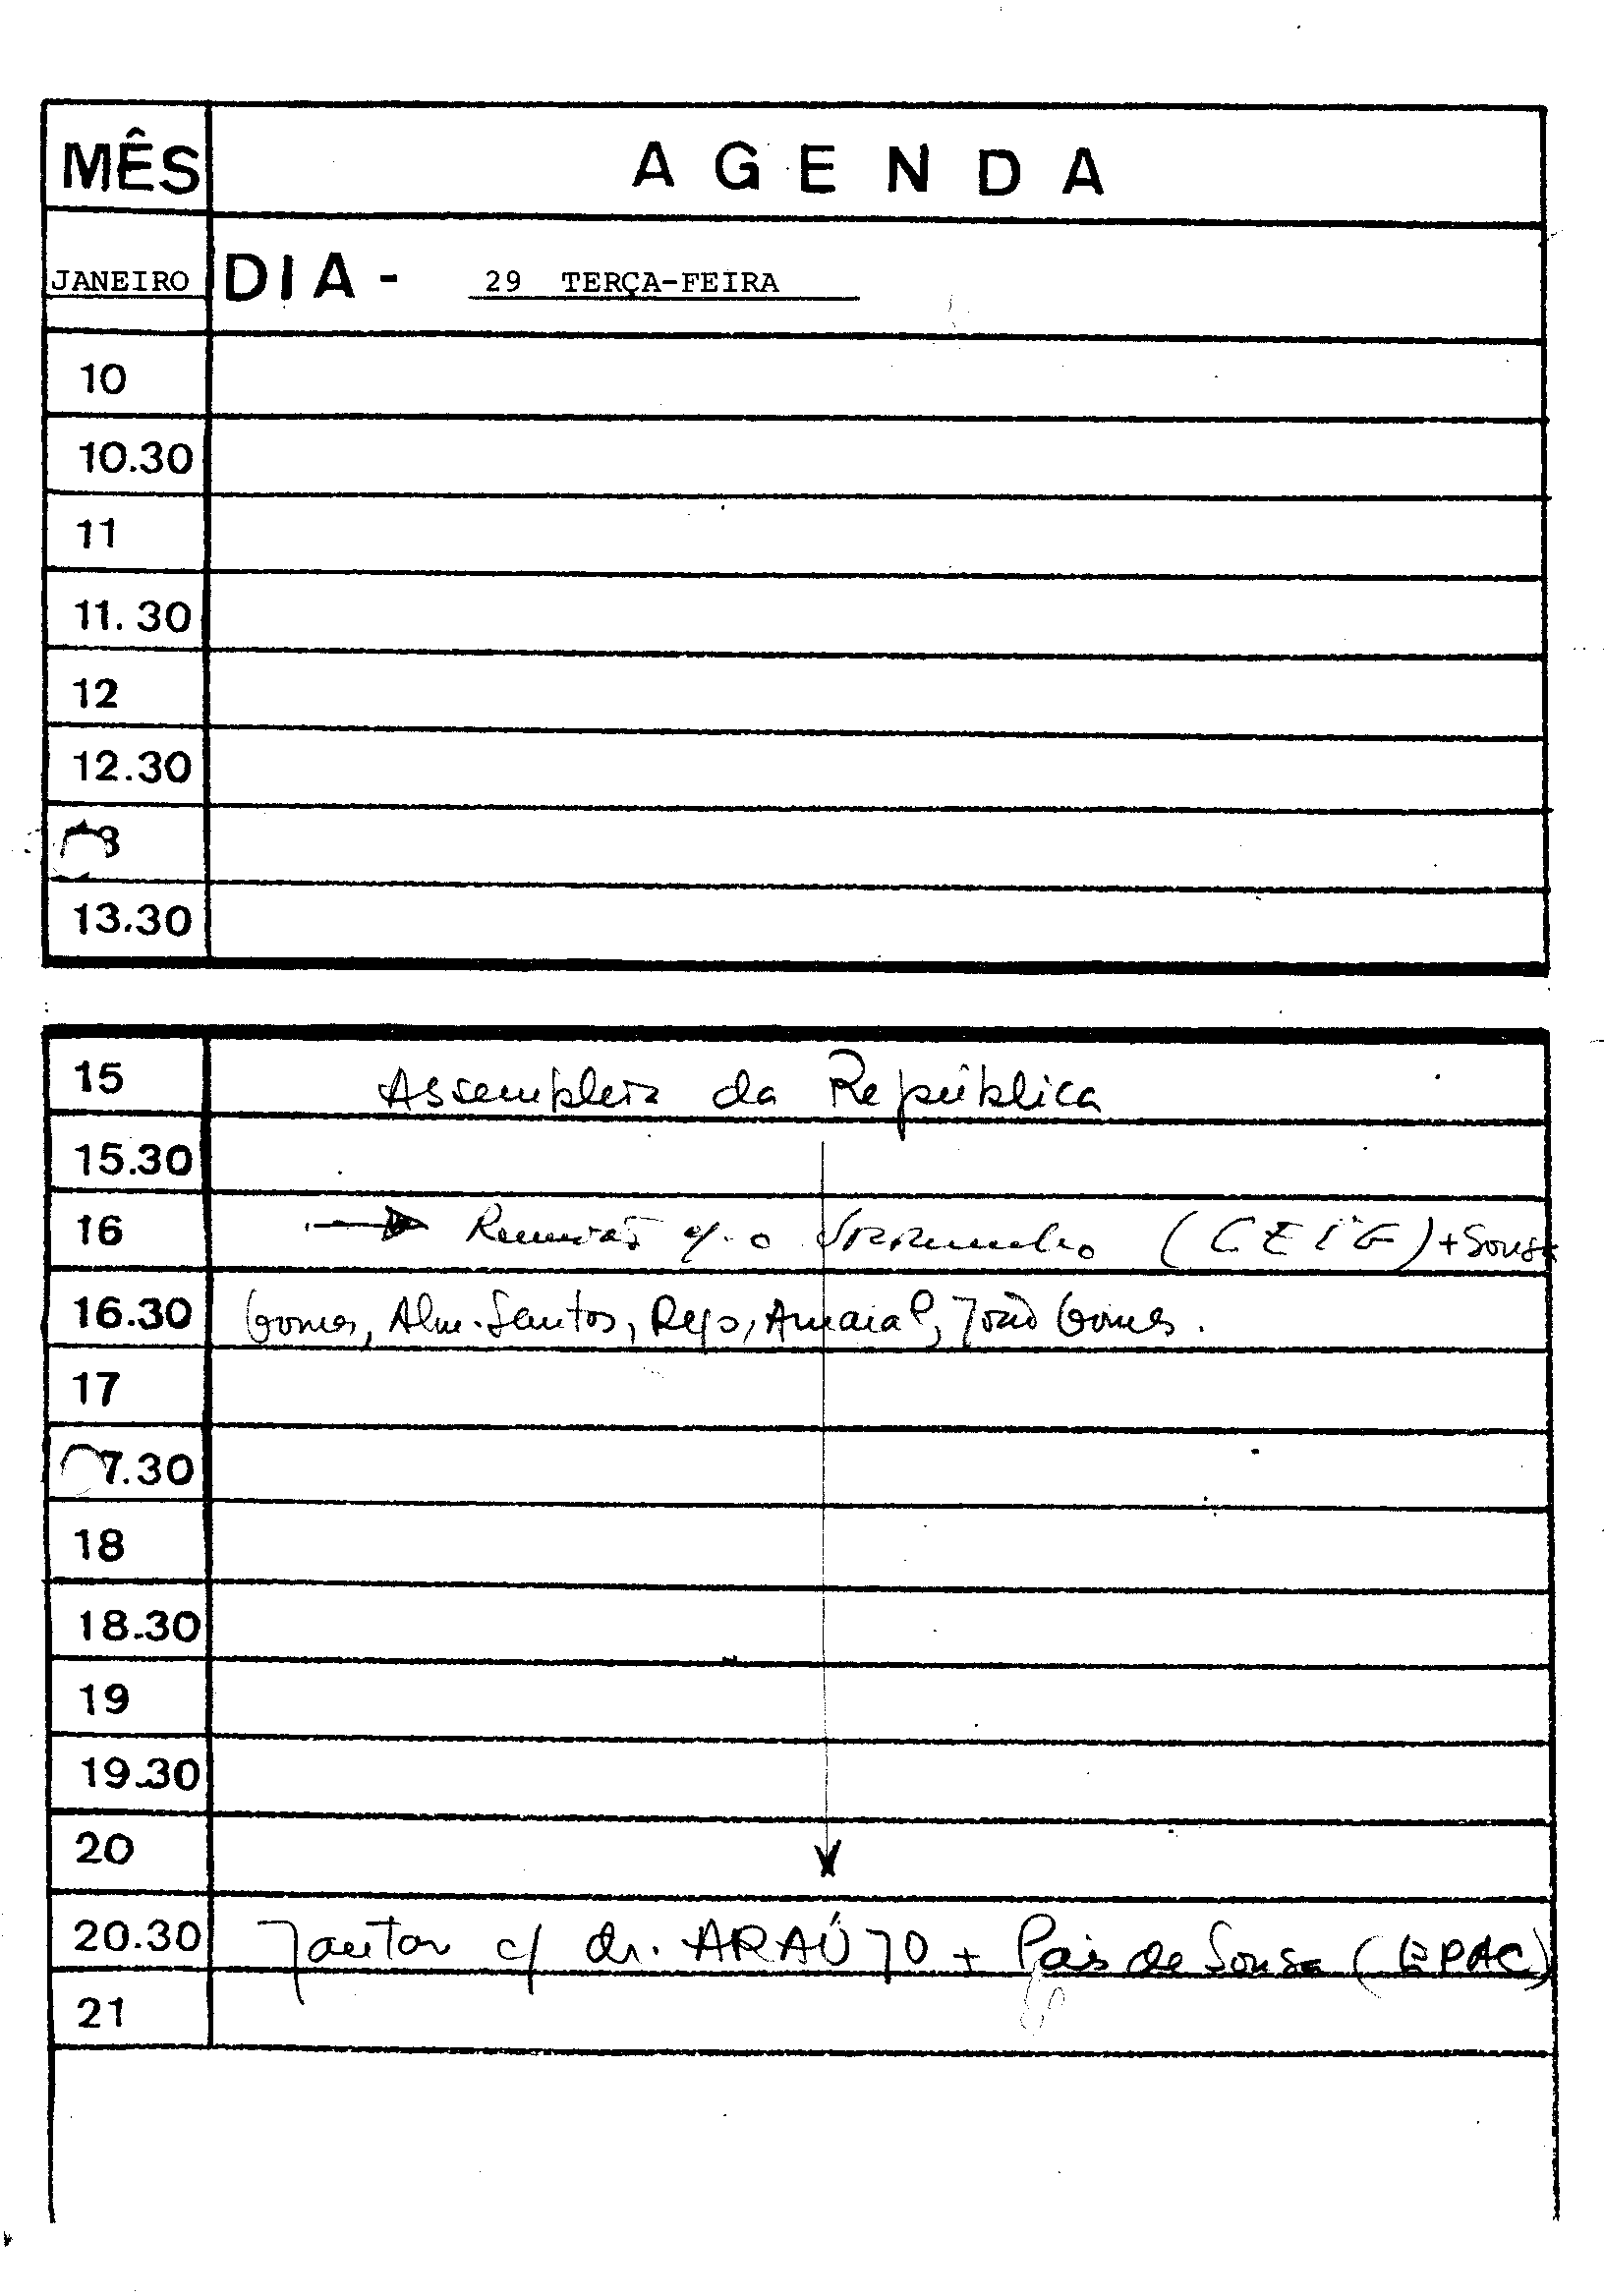 MÊS AGENDA
JANEIRO DIA - 29 TERÇA-FEIRA
10
10.30
11
11.30
12
12.30
3
13.30
15 Assembleia da República
15.30
16 Reunião c/ o (CEIG) + Sousa
16.30 Gomes, Alm. Santos, Rego, Amaral, João Gomes.
17
7.30
18
18.30
19
19.30
20
20.30 Jantar c/ dr. ARAÚJO + Pais de Sousa (EPAC)
21